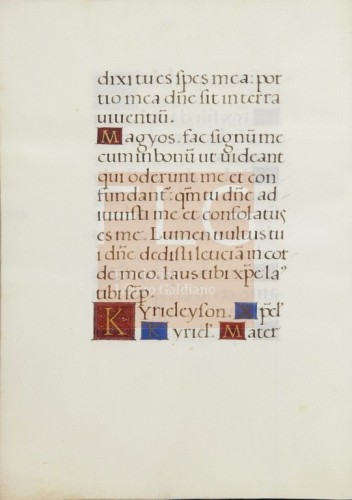 dixi tu es spes mea: por
tio mea dñe sit in terra
uiuentiũ.
Magyos. fac signũ me
cum in bonũ ut uideant
qui oderunt me et con
fundant̃. qm̃ tu dñe ad
iuuisti me et consolatus
es me. Lumen uultus tu
i dñe dedisti leticiã in cor
de meo. laus tibi xp̃e la
tibi sẽp.
Kyrieleyson. xp̃el'
Kyriel'. Mater
FLG
Lázaro Galdiano